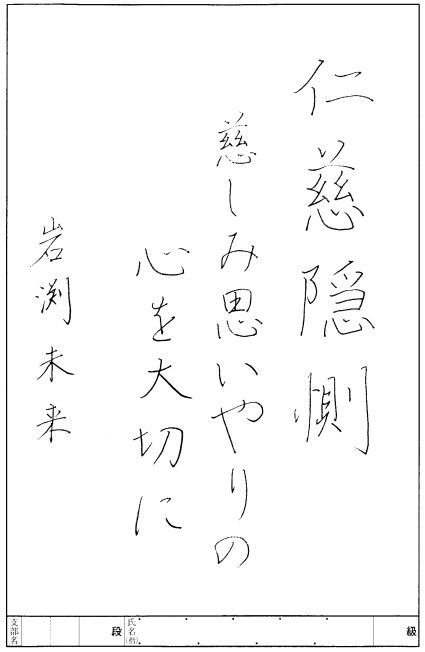 仁慈隠惻
慈しみ思いやりの
心を大切に
岩渕未来
級
氏名(号)
段
支部名